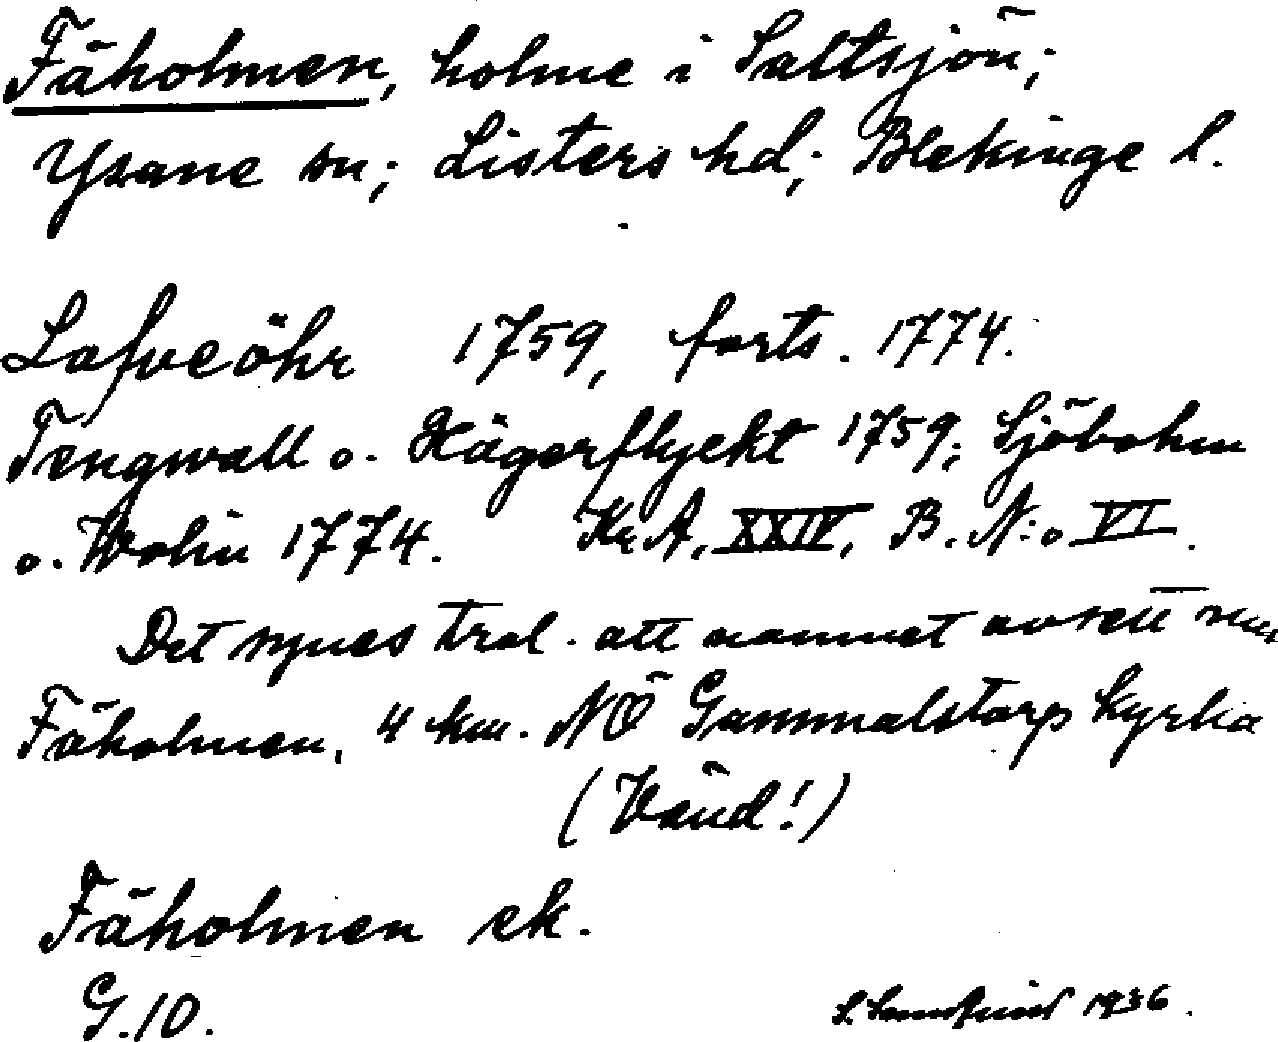 Fäholmen, holme i Saltsjön;
Ysane sn; Listers hd; Blekinge l.
Lafveöhr 1759, forts. 1774.
Tengwall o. Hägerflycht 1759; Sjöbohm
o. Wolin 1774. Kr. A, XXIV, B. N:o VI.
Det synes trol. att namnet avsett nuv.
Fäholmen, 4 km. NÖ Gammalstorp kyrka
(Vänd!)
Fäholmen ek.
G. 10.
1936.